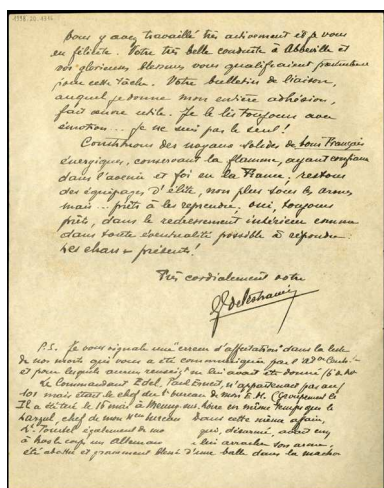 Vous y avez travaillé très activement et je vous
en félicite. Votre très belle conduite à Abbeville et
vos glorieuses blessures vous qualifiaient
pour cette tâche. Votre bulletin de liaison,
auquel je donne mon entière adhésion,
fait œuvre utile. Je le lis toujours avec
émotion... je ne suis pas le seul!
Constituons des noyaux solides de bons Français
énergiques, conservant la flamme, ayant confiance
dans l'avenir et foi en la France, restons
des équipages d'élite, non plus sous les armes
mais... prêts à les reprendre, oui, toujours
prêts, dans le redressement intérieur comme
dans toute éventualité possible à répondre:
les chars présents!
Très cordialement votre
P.S. Je vous signale une erreur d'affectation dans la liste
de nos morts qui vous a été communiquée par l'
et pour lesquels aucun
Le Commandant Edel, Paul Ernest, n'appartenait pas au
mais était chef du bureau de mon E.M.
Il a été tué le 16 mai à en même temps que le
chef de mon bureau dans cette même affaire,
également de qui, désarmé,
un Allemand lui arracher son arme,
été et d'une balle dans la